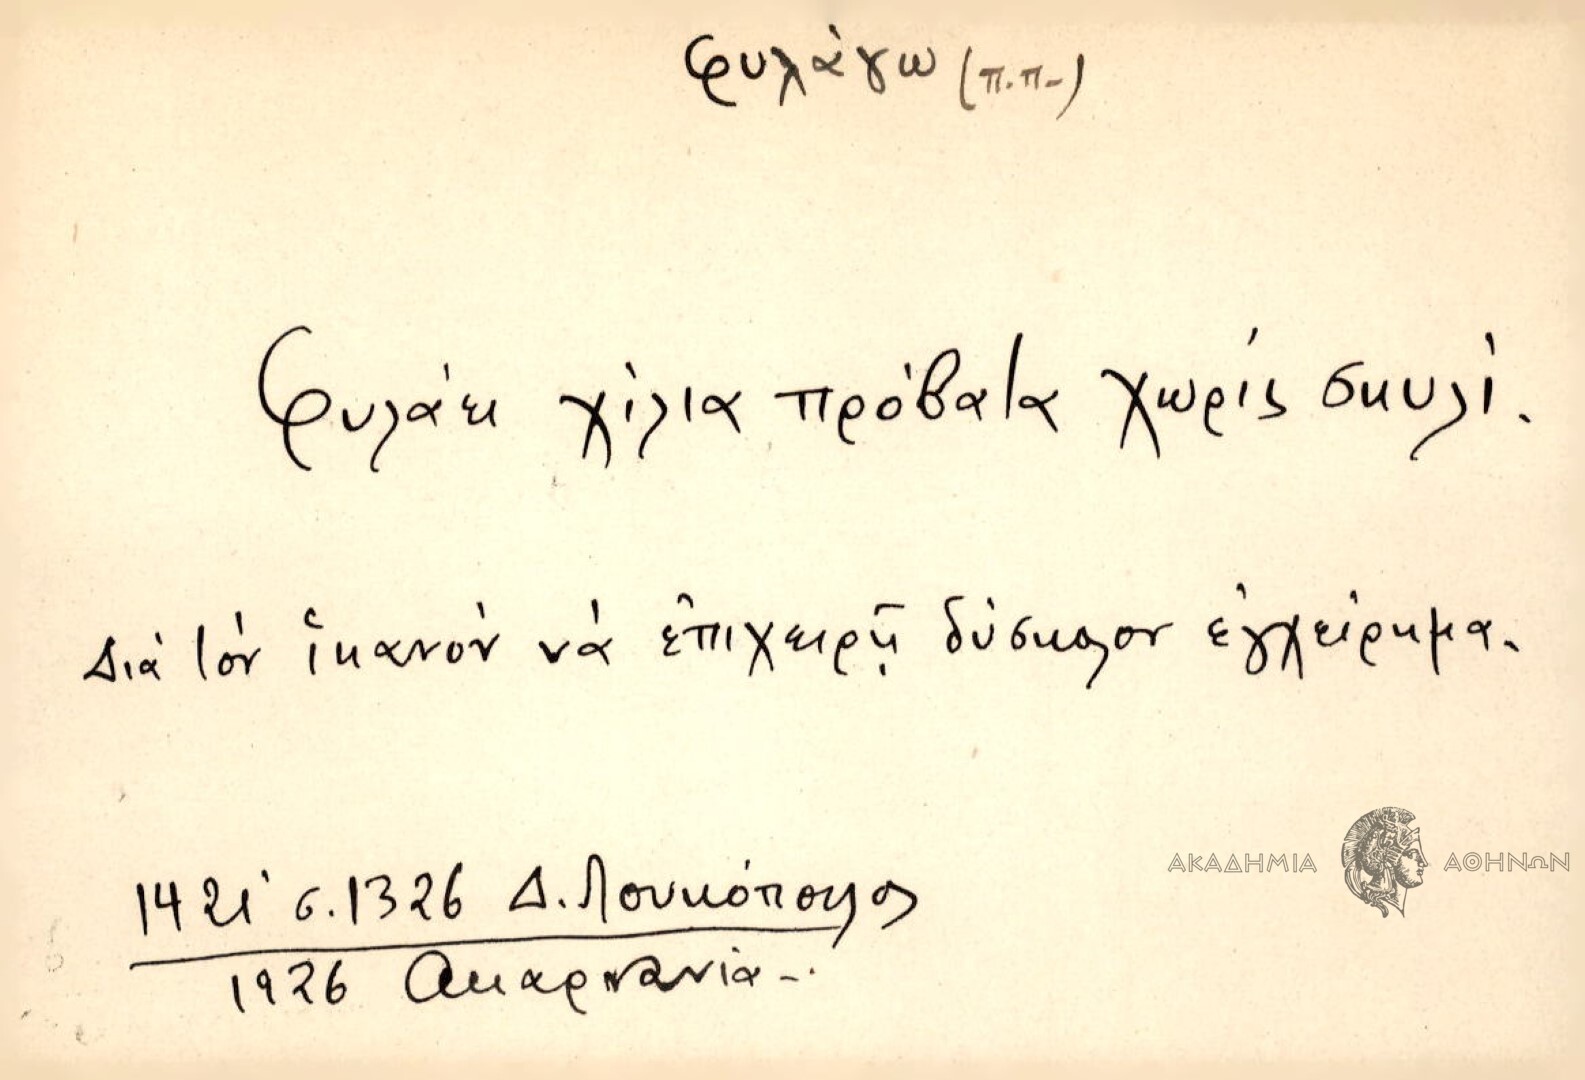 φυλάγω (π.π.)
Φυλάει χίλια πρόβατα χωρίς σκυλί.
Διά τόν ἱκανόν νά ἐπιχειρῇ δύσκολον ἐγχείρημα.
ΑΚΑΔΗΜΙΑ ΑΘΗΝΩΝ
σ. 1326 Δ. Λουκόπουλος
1926 Ακαρνανία